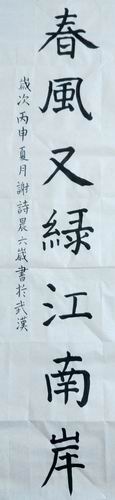 春風又緑江南岸
歲次丙申夏月謝詩晨六歲書於武漢